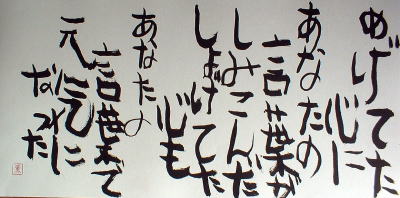 めげてた
心に
あなたの
言葉が
しみこんだ
しょげてた
心も
あなたの
言葉で
元気に
なつた